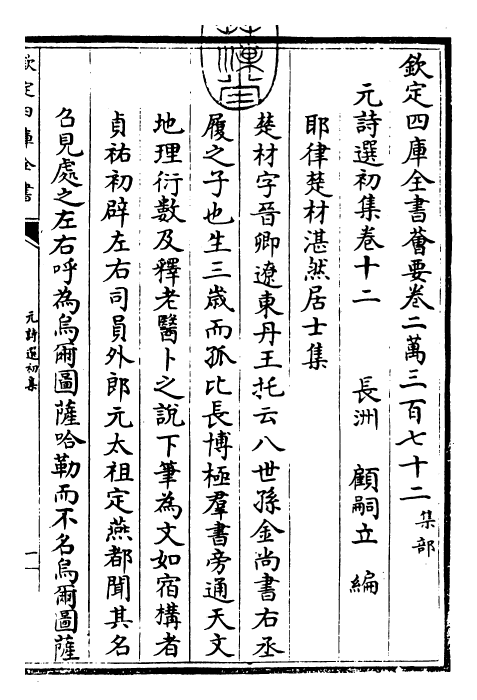 欽定四庫全書薈要卷二萬三百七十二 集部
元詩選初集卷十二 長洲 顧嗣立 編
耶律楚材湛然居士集
楚材字晉卿遼東丹王托云八世孫金尚書右丞
履之子也生三歲而孤比長博極羣書旁通天文
地理衍數及釋老醫卜之說下筆為文如宿構者
貞祐初辟左右司員外郎元太祖定燕都聞其名
召見處之左右呼為烏爾圖薩哈勒而不名烏爾圖薩
欽定四庫全書
元詩選初集
一